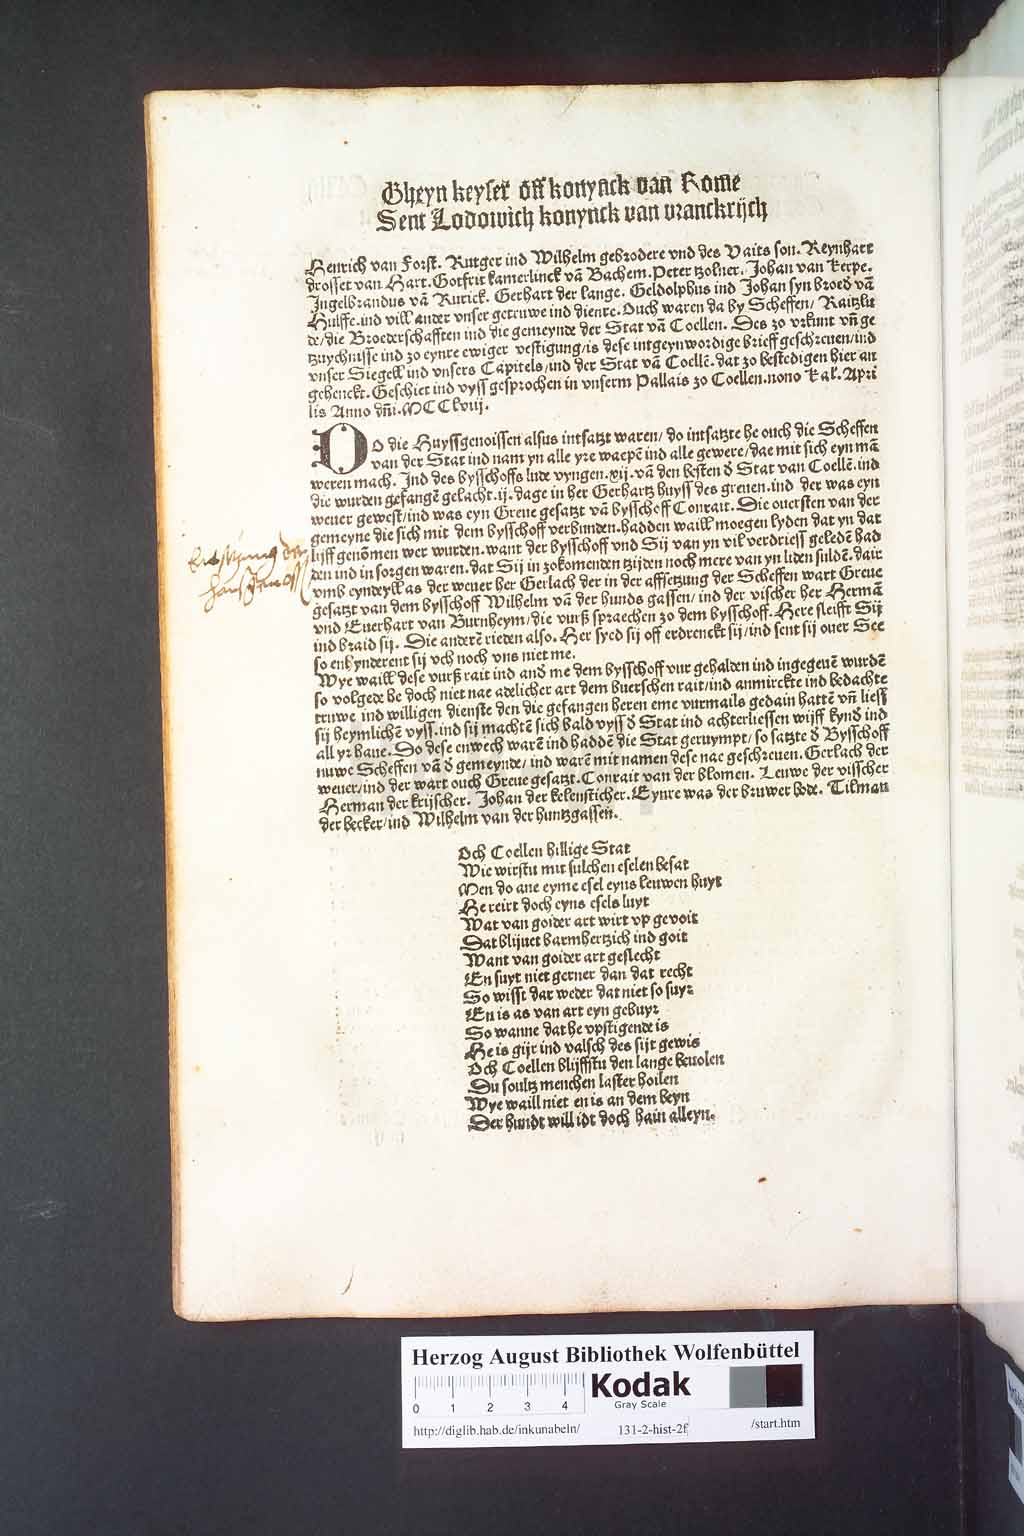 Gheyn keyser off konynck van Rome
Sent Lodowich konynck van vranckrijch
Henrich van Forst. Rutger ind Wilhelm gebrodere vnd des Vaits son. Reynhart
drosset van Hart. Gotfrit kamerlinck vā Bachem. Peter tzolner. Johan van Kerpe.
Ingelbrandus vā Rurick. Gerhart der lange. Geldolphus ind Johan syn broed vā
Hulffe. ind vill ander vnser getruwe ind dienre. Ouch waren da by Scheffen/ Raitzlu
de/ die Broederschafften ind die gemeynde der Stat vā Coellen. Des zo vrkunt vñ ge
tzuychnisse ind zo eynre ewiger vestigung/ is dese intgeynwordige brieff geschreuen/ ind
vnser Siegell ind vnsers Capitels/ ind der Stat vā Coellē. dat zo bestedigen hier an
gehenckt. Geschiet ind vyss gesprochen in vnserm Pallais zo Coellen. nono Kal. Apri
lis Anno dñi. MCClviij.
DO die Huyssgenoissen alsus intsatzt waren/ do intsatzte he ouch die Scheffen
van der Stat ind nam yn alle yre waepē ind alle gewere/ dae mit sich eyn mā
weren mach. Ind des bysschoffs lude vyngen. xij. vā den besten d̄ Stat van Coellē. ind
die wurden gefangē gelacht. ij. dage in her Gerhartz huyss des greuen. ind der was eyn
weuer gewest/ ind was eyn Greue gesatzt vā bysschoff Conrait. Die ouersten van der
gemeyne die sich mit dem bysschoff verbunden. hadden waill moegen lyden dat yn dat
lijff genōmen wer wurden. want der bysschoff vnd Sij van yn vil verdriess geledē had
den ind in sorgen waren. dat Sij in zokomenden tzijden noch mere van yn liden suldē. dair
vmb eyndeyll as der weuer her Gerlach der in der affsetzung der Scheffen wart Greue
gesatzt van dem bysschoff Wilhelm vā der hunds gassen/ ind der vischer her Hermā
vnd Euerhart van Burnheym/ die vurß spraechen zo dem bysschoff. Here sleifft Sij
ind braid sij. Die anderē rieden also. Her syed sij off erdrenckt sij/ ind sent sij ouer See
so enhynderent sij vch noch vns niet me.
Wye waill dese vurß rait ind and̄ me dem bysschoff vur gehalden ind ingegeuē wurdē
so volgede he doch niet nae adelicher art dem buerschen rait/ ind anmirckte ind bedachte
truwe ind willigen dienste den die gefangen heren eme vurmails gedain hattē vñ liess
sij heymlichē vyss. ind sij machtē sich bald vyss d̄ Stat ind achterliessen wijff kynd̄ ind
all yr haue. Do dese enwech warē ind haddē die Stat geruympt/ so satzte d̄ Bysschoff
nuwe Scheffen vā d̄ gemeynde/ ind warē mit namen dese nae geschreuen. Gerlach der
weuer/ ind der wart ouch Greue gesatzt. Conrait van der blomen. Leuwe der visscher
Herman der krijscher. Johan der kelensticher. Eynre was der bruwer bode. Tilman
der becker/ ind Wilhelm van der huntzgassen.
Och Coellen hillige Stat
Wie wirstu mit sulchen eselen besat
Men do ane eyme esel eyns leuwen huyt
He reirt doch eyns esels luyt
Wat van goider art wirt vp gevoit
Dat blijuet barmhertzich ind goit
Want van goider art geslecht
En suyt niet gerner dan dat recht
So wisst dar weder dat niet so suyr
En is as van art eyn gebuyr
So wanne dat he vpstigende is
He is gijr ind valsch des sijt gewis
Och Coellen blijffstu den lange beuolen
Du soultz menchen laster hoilen
Wye waill niet en is an dem beyn
Der hundt will idt doch hain alleyn.
Herzog August Bibliothek Wolfenbüttel
0 1 2 3 4
Kodak
Gray Scale
http://diglib.hab.de/inkunabeln/ 131-2-hist-2f /start.htm